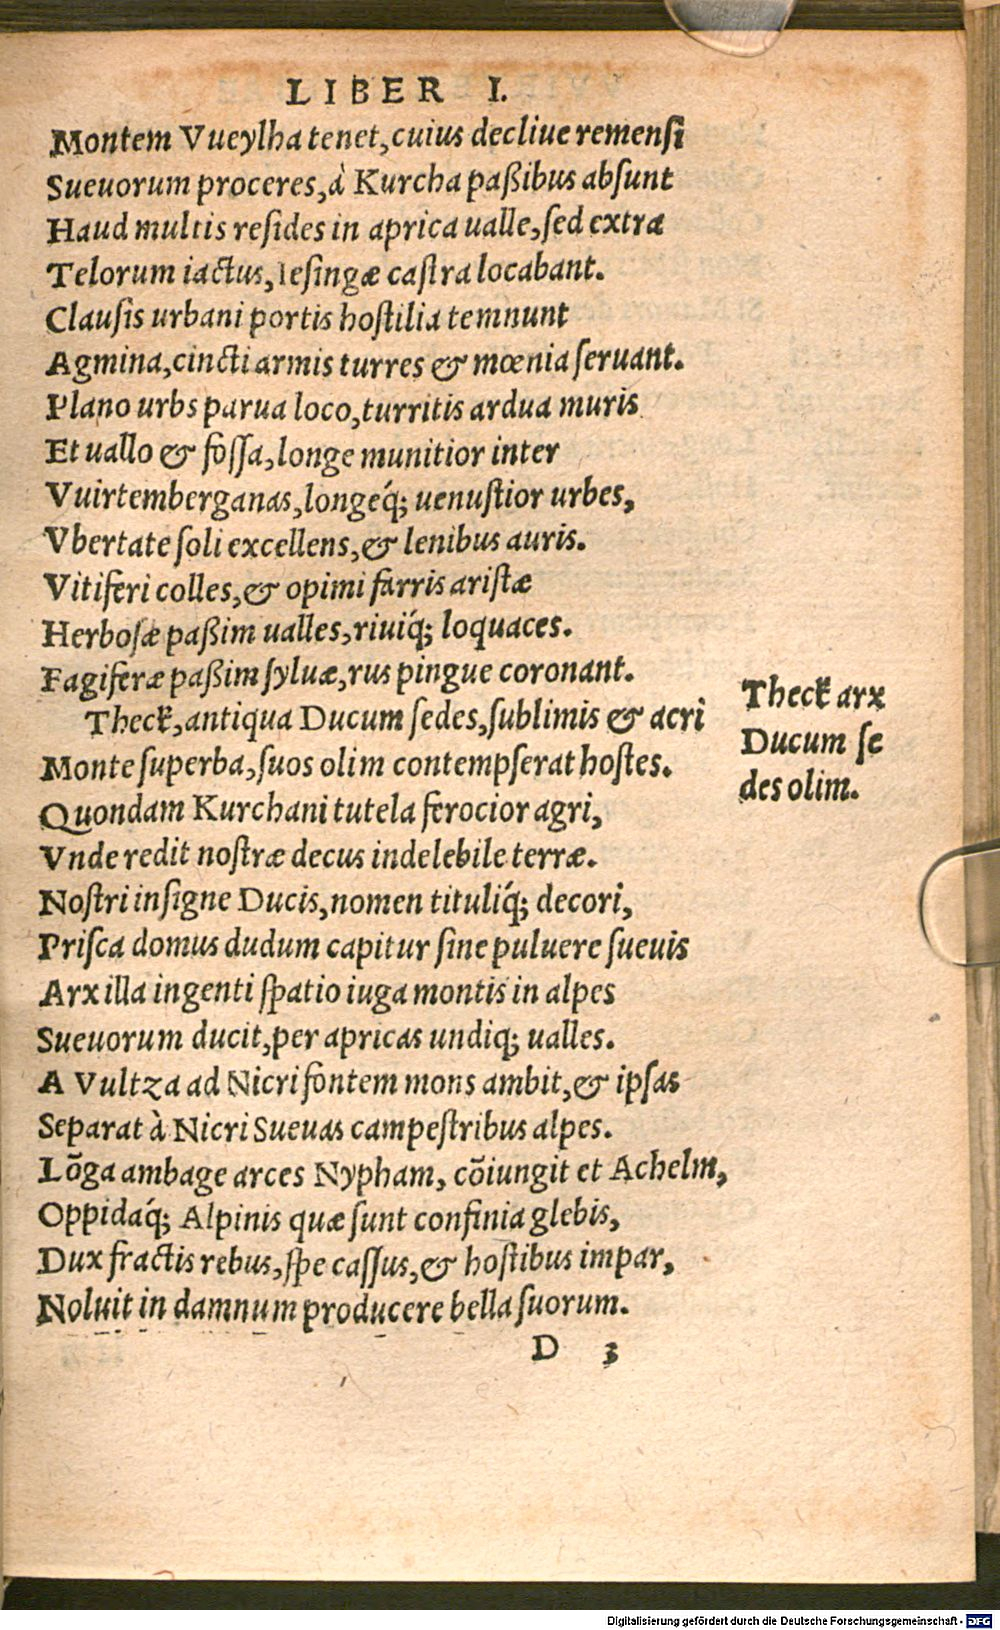 LIBER I.
Montem Vueylha tenet, cuius decliue remensi
Sueuorum proceres, à Kurcha paßibus absunt
Haud multis resides in aprica ualle, sed extra
Telorum iactus, Iesingæ castra locabant.
Clausis urbani portis hostilia temnunt
Agmina, cincti armis turres & mœnia seruant.
Plano urbs parua loco, turritis ardua muris
Et uallo & fossa, longe munitior inter
Vuirtemberganas, longeq́; uenustior urbes,
Vbertate soli excellens, & lenibus auris.
Vitiferi colles, & opimi farris aristæ
Herbosæ paßim ualles, riuiq́; loquaces.
Fagiferæ paßim syluæ, rus pingue coronant.
Theck, antiqua Ducum sedes, sublimis & acri
Monte superba, suos olim contempserat hostes.
Quondam Kurchani tutela ferocior agri,
Vnde redit nostræ decus indelebile terræ.
Nostri insigne Ducis, nomen tituliq́; decori,
Prisca domus dudum capitur sine puluere sueuis
Arx illa ingenti spatio iuga montis in alpes
Sueuorum ducit, per apricas undiq; ualles.
A Vultza ad Nicri fontem mons ambit, & ipsas
Separat à Nicri Sueuas campestribus alpes.
Lōga ambage arces Nypham, cōiungit et Achelm,
Oppidaq́; Alpinis quæ sunt confinia glebis,
Dux fractis rebus, spe cassus, & hostibus impar,
Noluit in damnum producere bella suorum.
D 3
Theck arx
Ducum se
des olim.
Digitalisierung gefördert durch die Deutsche Forschungsgemeinschaft - DFG